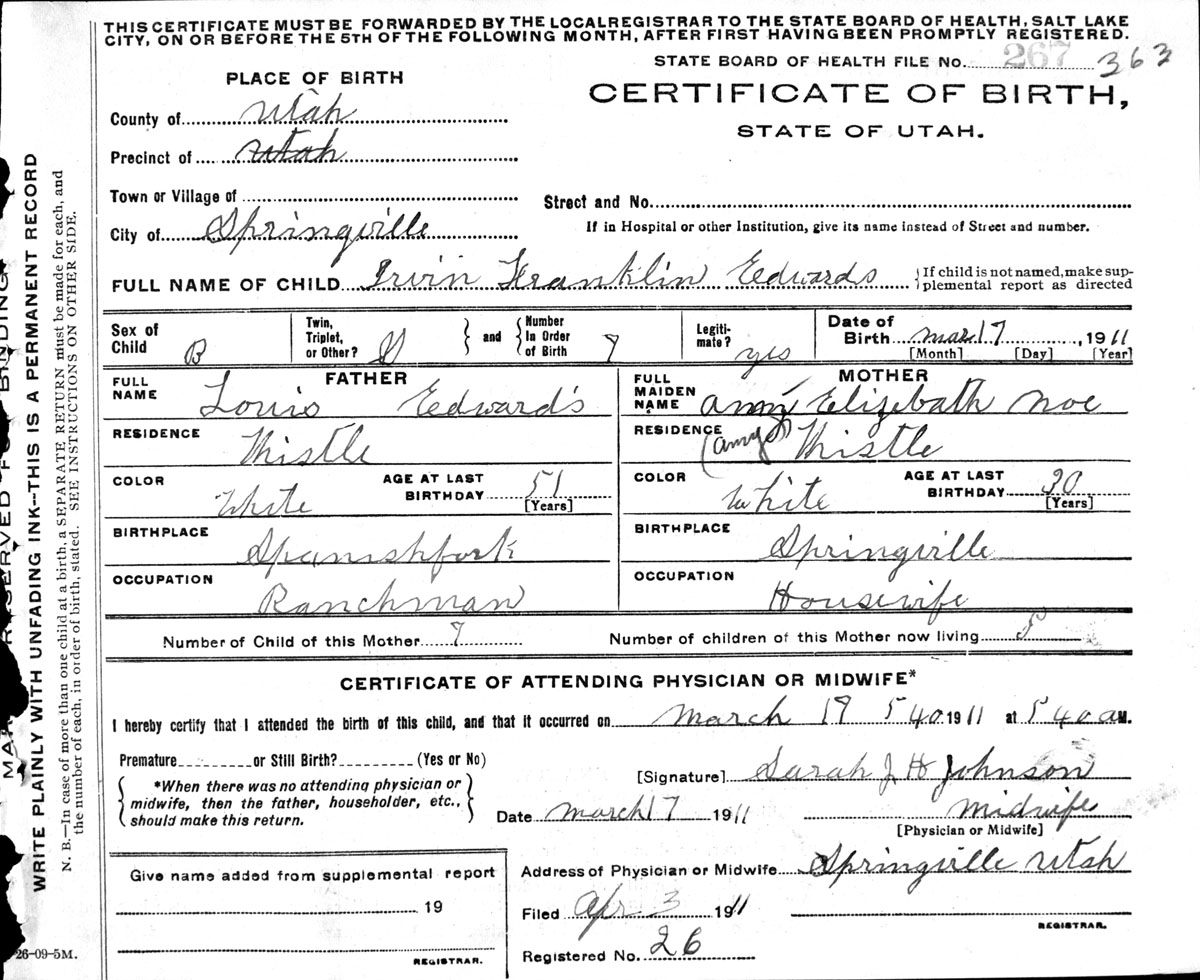 THIS CERTIFICATE MUST BE FORWARDED BY THE LOCAL REGISTRAR TO THE STATE BOARD OF HEALTH, SALT LAKE
CITY, ON OR BEFORE THE 5TH OF THE FOLLOWING MONTH, AFTER FIRST HAVING BEEN PROMPTLY REGISTERED.
STATE BOARD OF HEALTH FILE No. 267 363
PLACE OF BIRTH
CERTIFICATE OF BIRTH,
STATE OF UTAH.
County of Utah
Precinct of Utah
Town or Village of
Street and No.
City of Springville
If in Hospital or other Institution, give its name instead of Street and number.
FULL NAME OF CHILD Irvin Franklin Edwards {If child is not named, make sup-
plemental report as directed
Sex of Child B
Twin, Triplet, or Other? } and { Number In Order of Birth 7
Legiti-mate? yes
Date of Birth Mar 17, 1911
[Month] [Day] [Year]
FATHER
FULL NAME Louis Edward's
RESIDENCE Thistle
COLOR White AGE AT LAST BIRTHDAY 51 [Years]
BIRTHPLACE Spanishfork
OCCUPATION Ranchman
MOTHER
FULL MAIDEN NAME Elizebath Noe
RESIDENCE (Amy) Thistle
COLOR White AGE AT LAST BIRTHDAY 30 [Years]
BIRTHPLACE Springville
OCCUPATION Housewife
Number of Child of this Mother 7 Number of children of this Mother now living 5
CERTIFICATE OF ATTENDING PHYSICIAN OR MIDWIFE*
I hereby certify that I attended the birth of this child, and that it occurred on March 17 5 40 1911 at 5 40 a M.
Premature or Still Birth? (Yes or No)
*When there was no attending physician or
midwife, then the father, householder, etc.,
should make this return.
[Signature] Sarah J H Johnson
Date March 17 1911 Midwife
[Physician or Midwife]
Give name added from supplemental report
19
REGISTRAR.
Address of Physician or Midwife Springville Utah
Filed Apr 3 1911
REGISTRAR.
Registered No. 26
WRITE PLAINLY WITH UNFADING INK--THIS IS A PERMANENT RECORD
N. B.—In case of more than one child at a birth, a SEPARATE RETURN must be made for each, and
the number of each, in order of birth, stated. SEE INSTRUCTIONS ON OTHER SIDE.
26-09-5M.